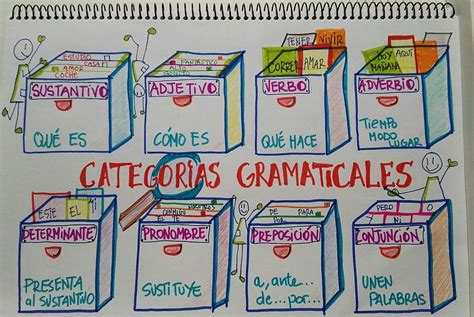 ESTUDIO
CASA
AMOR
COCHE
SUSTANTIVO
QUÉ ES
FANTÁSTICO
ALTO
ADJETIVO
CÓMO ES
TENER VIVIR
CORRER AMAR
VERBO
QUÉ HACE
HOY AQUÍ
MAÑANA
ADVERBIO
TIEMPO
MODO
LUGAR
CATEGORÍAS GRAMATICALES
ESTE EL MI
DETERMINANTE
PRESENTA
al SUSTANTIVO
NOSOTROS
EL TE
PRONOMBRE
SUSTITUYE
DE PARA
POR
PREPOSICIÓN
a, ante...
de...por...
PERO O
NI
CONJUNCIÓN
UNEN
PALABRAS